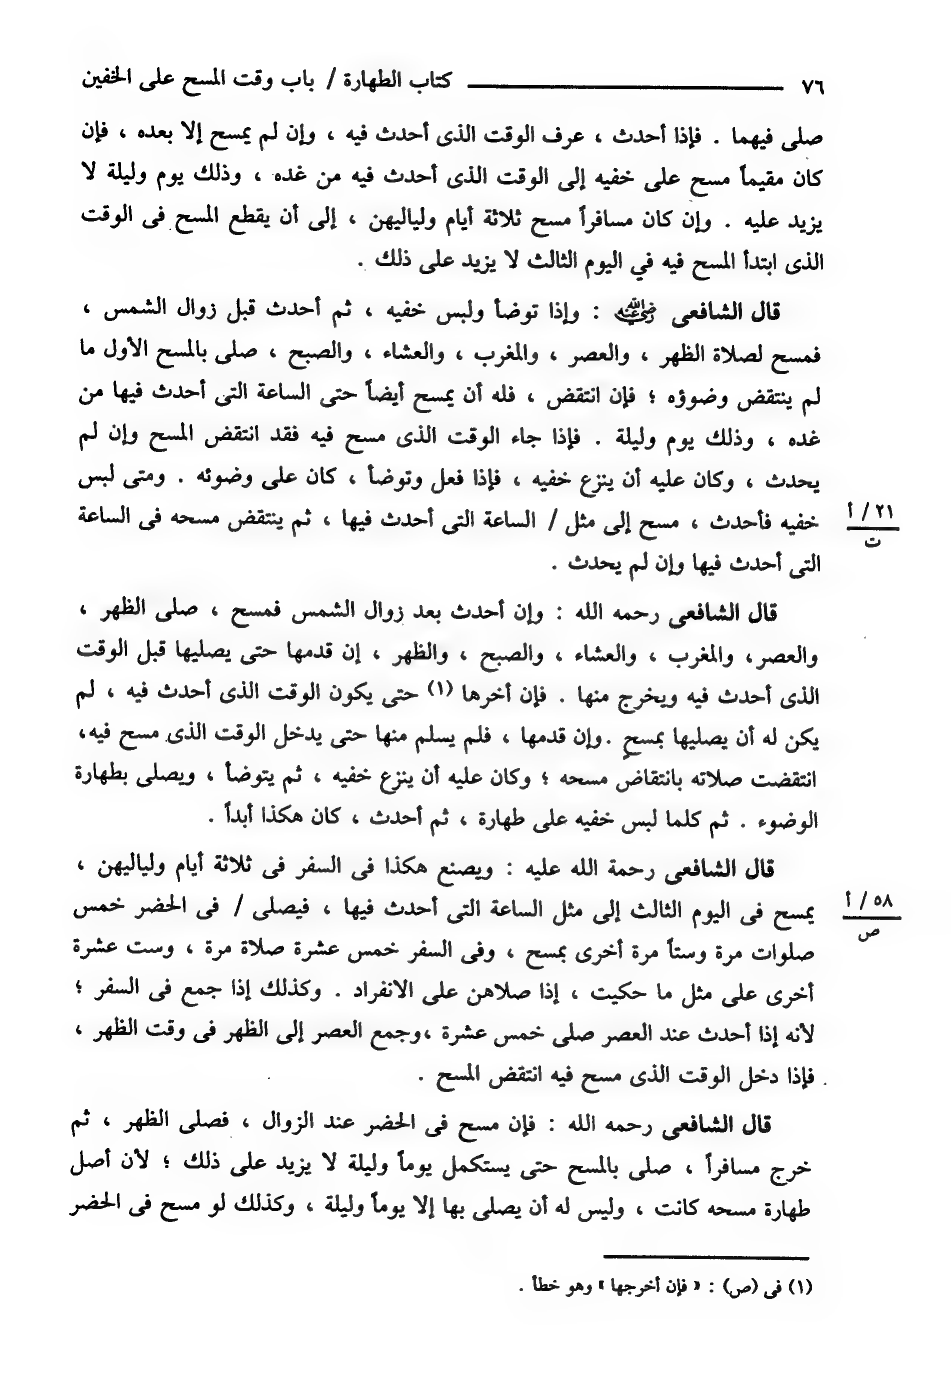 ٧٦ كتاب الطهارة / باب وقت المسح على الخفين
صلى فيهما . فإذا أحدث ، عرف الوقت الذى أحدث فيه ، وإن لم يمسح إلا بعده ، فإن
كان مقيماً مسح على خفيه إلى الوقت الذى أحدث فيه من غده ، وذلك يوم وليلة لا
يزيد عليه . وإن كان مسافراً مسح ثلاثة أيام ولياليهن ، إلى أن يقطع المسح فى الوقت
الذى ابتدأ المسح فيه في اليوم الثالث لا يزيد على ذلك .
قال الشافعى رضي الله عنه : وإذا توضأ ولبس خفيه ، ثم أحدث قبل زوال الشمس ،
فمسح لصلاة الظهر ، والعصر ، والمغرب ، والعشاء ، والصبح ، صلى بالمسح الأول ما
لم ينتقض وضوؤه ؛ فإن انتقض ، فله أن يمسح أيضاً حتى الساعة التى أحدث فيها من
غده ، وذلك يوم وليلة . فإذا جاء الوقت الذى مسح فيه فقد انتقض المسح وإن لم
يحدث ، وكان عليه أن ينزع خفيه ، فإذا فعل وتوضأ ، كان على وضوئه . ومتى لبس
خفيه فأحدث ، مسح إلى مثل / الساعة التى أحدث فيها ، ثم ينتقض مسحه فى الساعة
٢١ / أ
ت
التى أحدث فيها وإن لم يحدث .
قال الشافعى رحمه الله : وإن أحدث بعد زوال الشمس فمسح ، صلى الظهر ،
والعصر، والمغرب ، والعشاء ، والصبح ، والظهر ، إن قدمها حتى يصليها قبل الوقت
الذى أحدث فيه ويخرج منها . فإن أخرها (١) حتى يكون الوقت الذى أحدث فيه ، لم
يكن له أن يصليها بمسح .وإن قدمها ، فلم يسلم منها حتى يدخل الوقت الذى مسح فيه،
انتقضت صلاته بانتقاض مسحه ؛ وكان عليه أن ينزع خفيه ، ثم يتوضأ ، ويصلى بطهارة
الوضوء . ثم كلما لبس خفيه على طهارة ، ثم أحدث ، كان هكذا أبداً .
قال الشافعى رحمة الله عليه : ويصنع هكذا فى السفر فى ثلاثة أيام ولياليهن ،
يمسح فى اليوم الثالث إلى مثل الساعة التى أحدث فيها ، فيصلى / فى الحضر خمس
٥٨ / أ
ص
صلوات مرة وستاً مرة أخرى بمسح ، وفى السفر خمس عشرة صلاة مرة ، وست عشرة
أخرى على مثل ما حكيت ، إذا صلاهن على الانفراد . وكذلك إذا جمع فى السفر ؛
لأنه إذا أحدث عند العصر صلى خمس عشرة ،وجمع العصر إلى الظهر فى وقت الظهر ،
فإذا دخل الوقت الذى مسح فيه انتقض المسح .
قال الشافعى رحمه الله : فإن مسح فى الحضر عند الزوال ، فصلى الظهر ، ثم
خرج مسافراً ، صلى بالمسح حتى يستكمل يوماً وليلة لا يزيد على ذلك ؛ لأن أصل
طهارة مسحه كانت ، وليس له أن يصلى بها إلا يوماً وليلة ، وكذلك لو مسح فى الحضر
(١) فى (ص) : « فإن أخرجها » وهو خطأ .